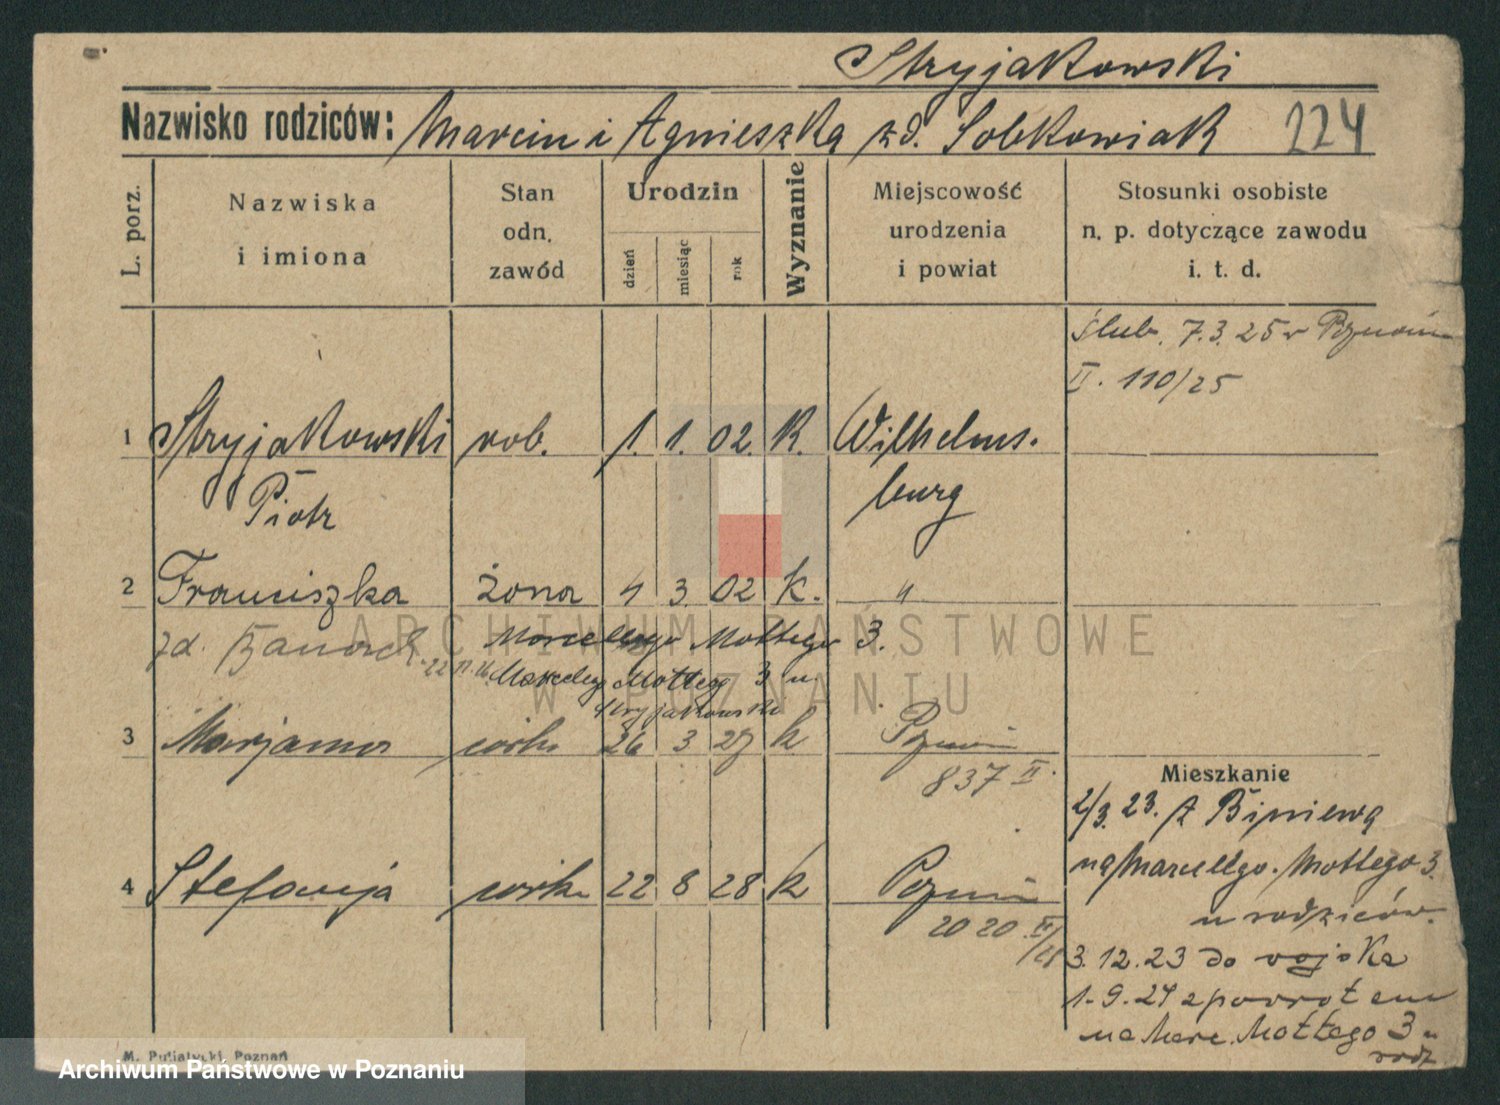 Stryjakowski
Nazwisko rodziców: Marcin i Agnieszka zd. Sobkowiak 224
L. porz.
Nazwiska
i imiona
Stan
odn.
zawód
Urodzin
dzień
miesiąc
rok
Wyznanie
Miejscowość
urodzenia
i powiat
Stosunki osobiste
n. p. dotyczące zawodu
i. t. d.
ślub. 7.3.25 w Poznaniu
II. 110/25
1 Stryjakowski rob. 1. 1. 02. K. Wilhelms.
burg
Piotr
2 Franciszka żona 4 3 02 k. "
zd. Banach Marcellego Mottego 3.
Mottego 3 u
Stryjakowski
3 Marjanna córka 26 3 27 k Poznań
837 II.
Mieszkanie
2/3. 23. z
na Marcellego. Mottego 3.
u rodziców.
4 Stefanja córka 22 8 28 k Poznań
2020 II/28
3.12.23 do wojska
1.9.24 zpowrotem
na Marc. Mottego 3 u
rodz.
M. Putiatycki, Poznań
ARCHIWUM PAŃSTWOWE
W POZNANIU
Archiwum Państwowe w Poznaniu